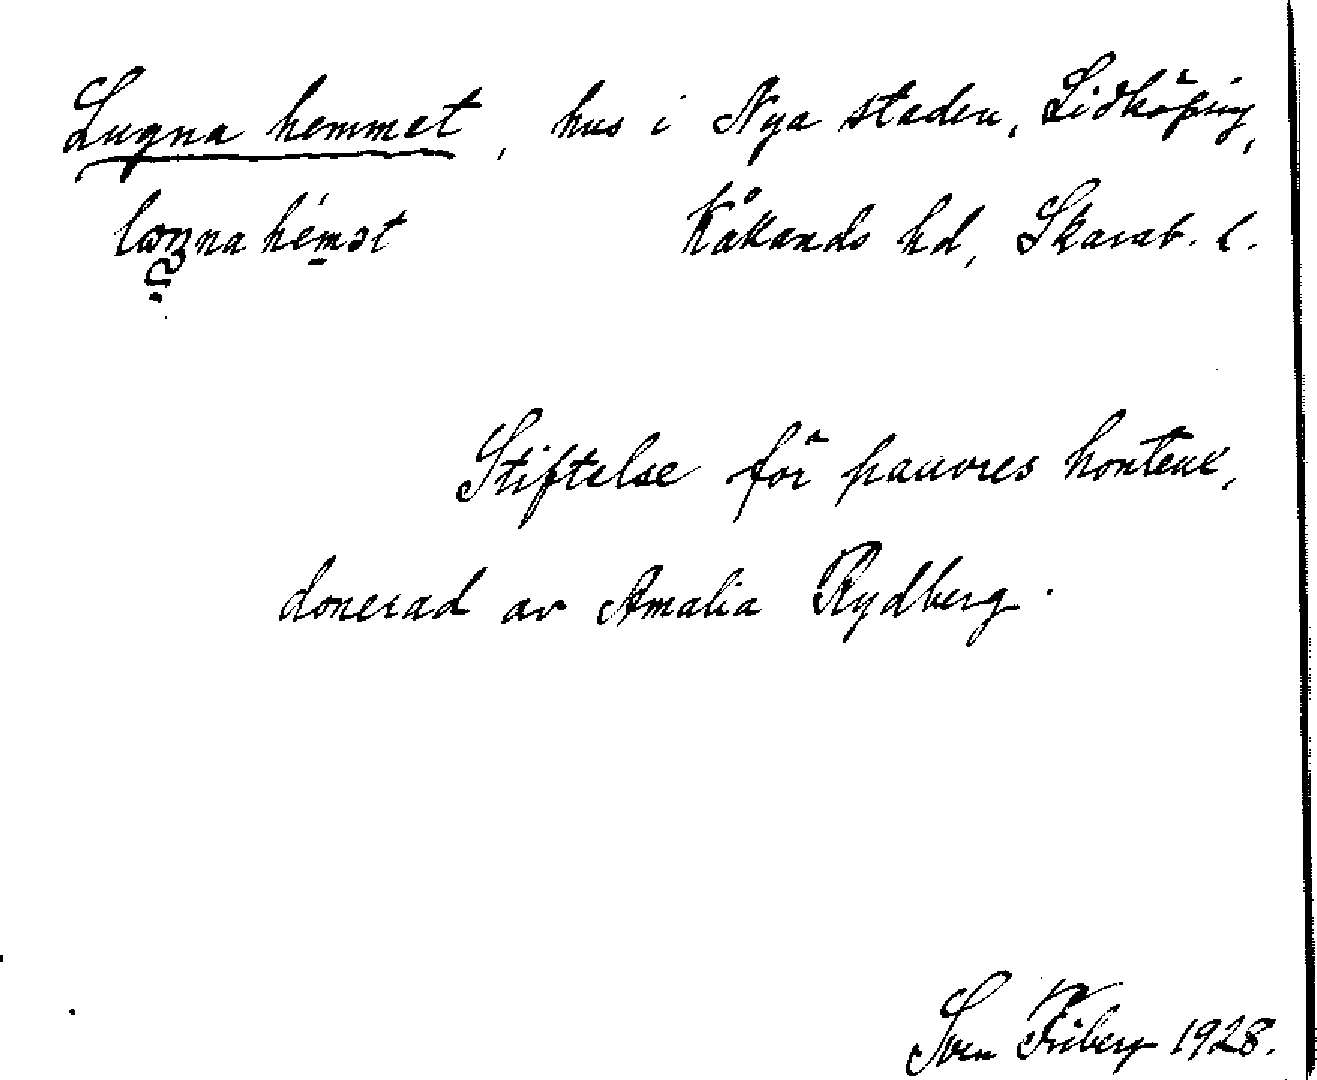 Lugna hemmet, hus i Nya staden, Lidköping,
Kåkands hd, Skarab. l.
Stiftelse för pauvres honteux,
donerad av Amalia Rydberg.
Sven Friberg 1928.